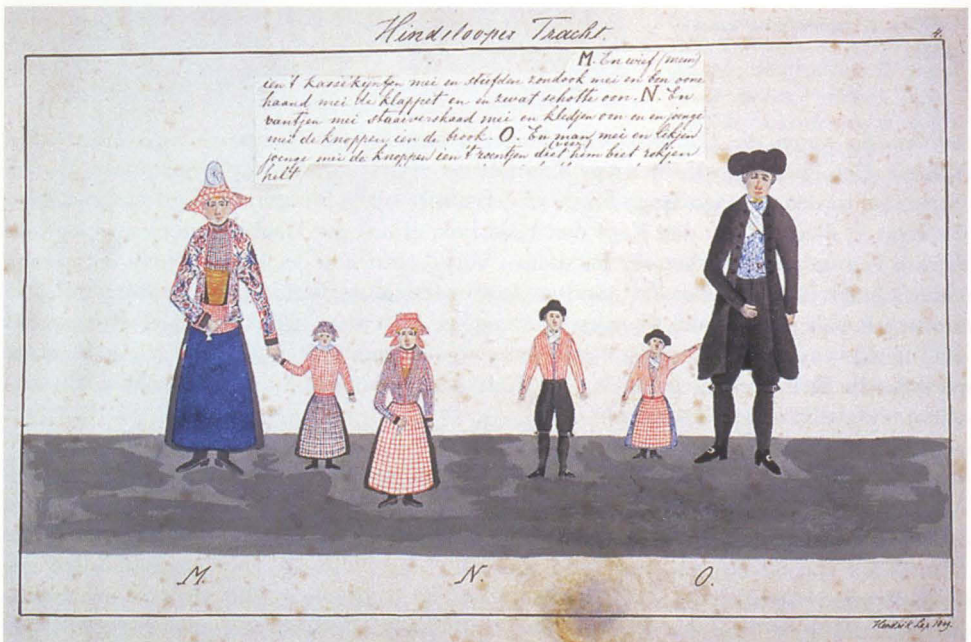 Hindelooper Tracht.
4.
M. En wief (mem)
ien't kassekyntjen mei en steefden zondook mei en bon oone
haand mei de klappet en en zwat schotte oon. N. En
mei en kledjen om en en joenge
mei de knoppen ien de brook. O. En man mei en
joenge mei de knoppen ien 't roentjen diet him biet rokjen
helt
M.
N.
O.
Hendrik Lap